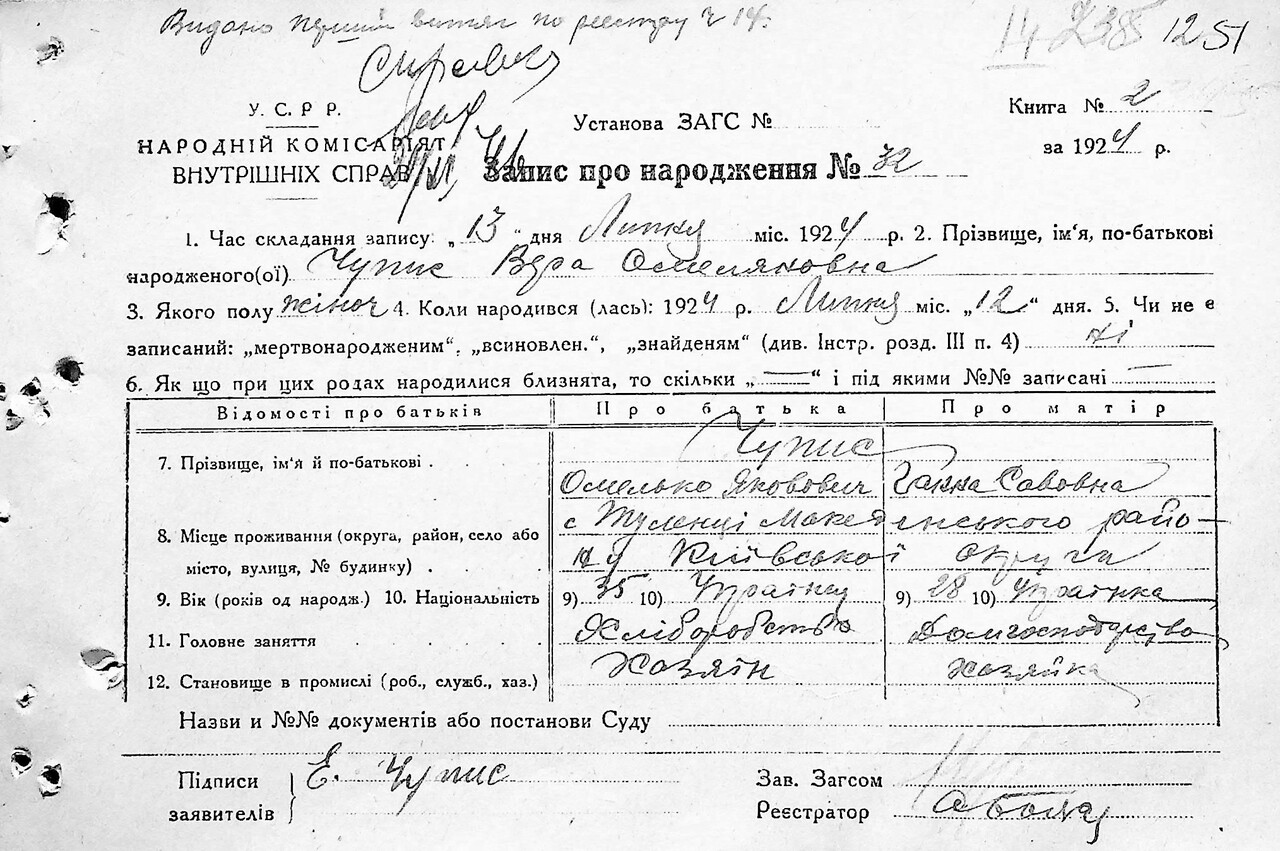 Видано перший витяг по реєстру ч 14.
14 238 1251
Справка
У. С. Р. Р.
НАРОДНІЙ КОМІСАРІЯТ
ВНУТРІШНІХ СПРАВ
Установа ЗАГС №
Книга № 2
за 1924 р.
Запис про народження № 32
1. Час складання запису: „13" дня Липня міс. 1924 р. 2. Прізвище, ім'я, по-батькові
народженого(ої) Чупис Вера Омеляновна
3. Якого полу жіноч 4. Коли народився (лась): 1924 р. Липня міс. „12" дня. 5. Чи не є
записаний: „мертвонародженим", „всиновлен.", „знайденям" (див. Інстр. розд. III п. 4) ні
6. Як що при цих родах народилися близнята, то скільки „—" і під якими №№ записані —
Відомості про батьків Про батька Про матір
7. Прізвище, ім'я й по-батькові . Чупис
Омелько Якович Ганна Савовна
8. Місце проживання (округа, район, село або
місто, вулиця, № будинку) . .
с Туленці Макеенського райо-
ну Київської округа
9. Вік (років од народж.) 10. Національність 9) 35 10) Українец 9) 28 10) Українка
11. Головне заняття . . . . Хліборобство Домгосподарство
12. Становище в промислі (роб., служб., хаз.) Хозяїн Хозяйка
Назви и №№ документів або постанови Суду
Підписи
заявителів
Е. Чупис
Зав. Загсом
Реєстратор